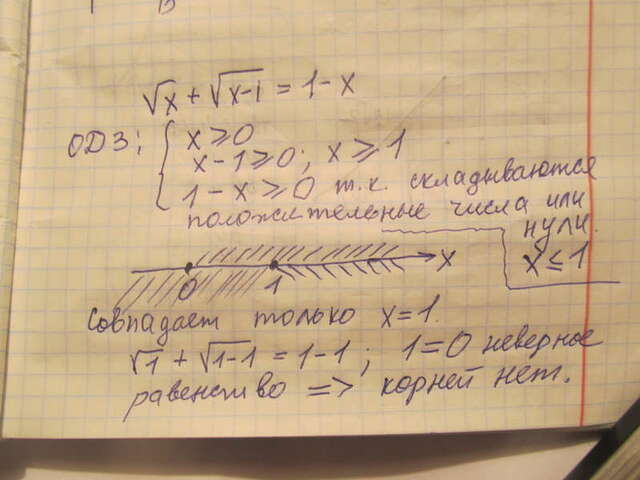 √x + √x-1 = 1-x
ОДЗ: { x ≥ 0
x-1 ≥ 0; x ≥ 1
1-x ≥ 0 т.к. складываются
положительные числа или
нули.
x ≤ 1
0 1 x
Совпадает только x=1.
√1 + √1-1 = 1-1; 1=0 неверное
равенство => корней нет.